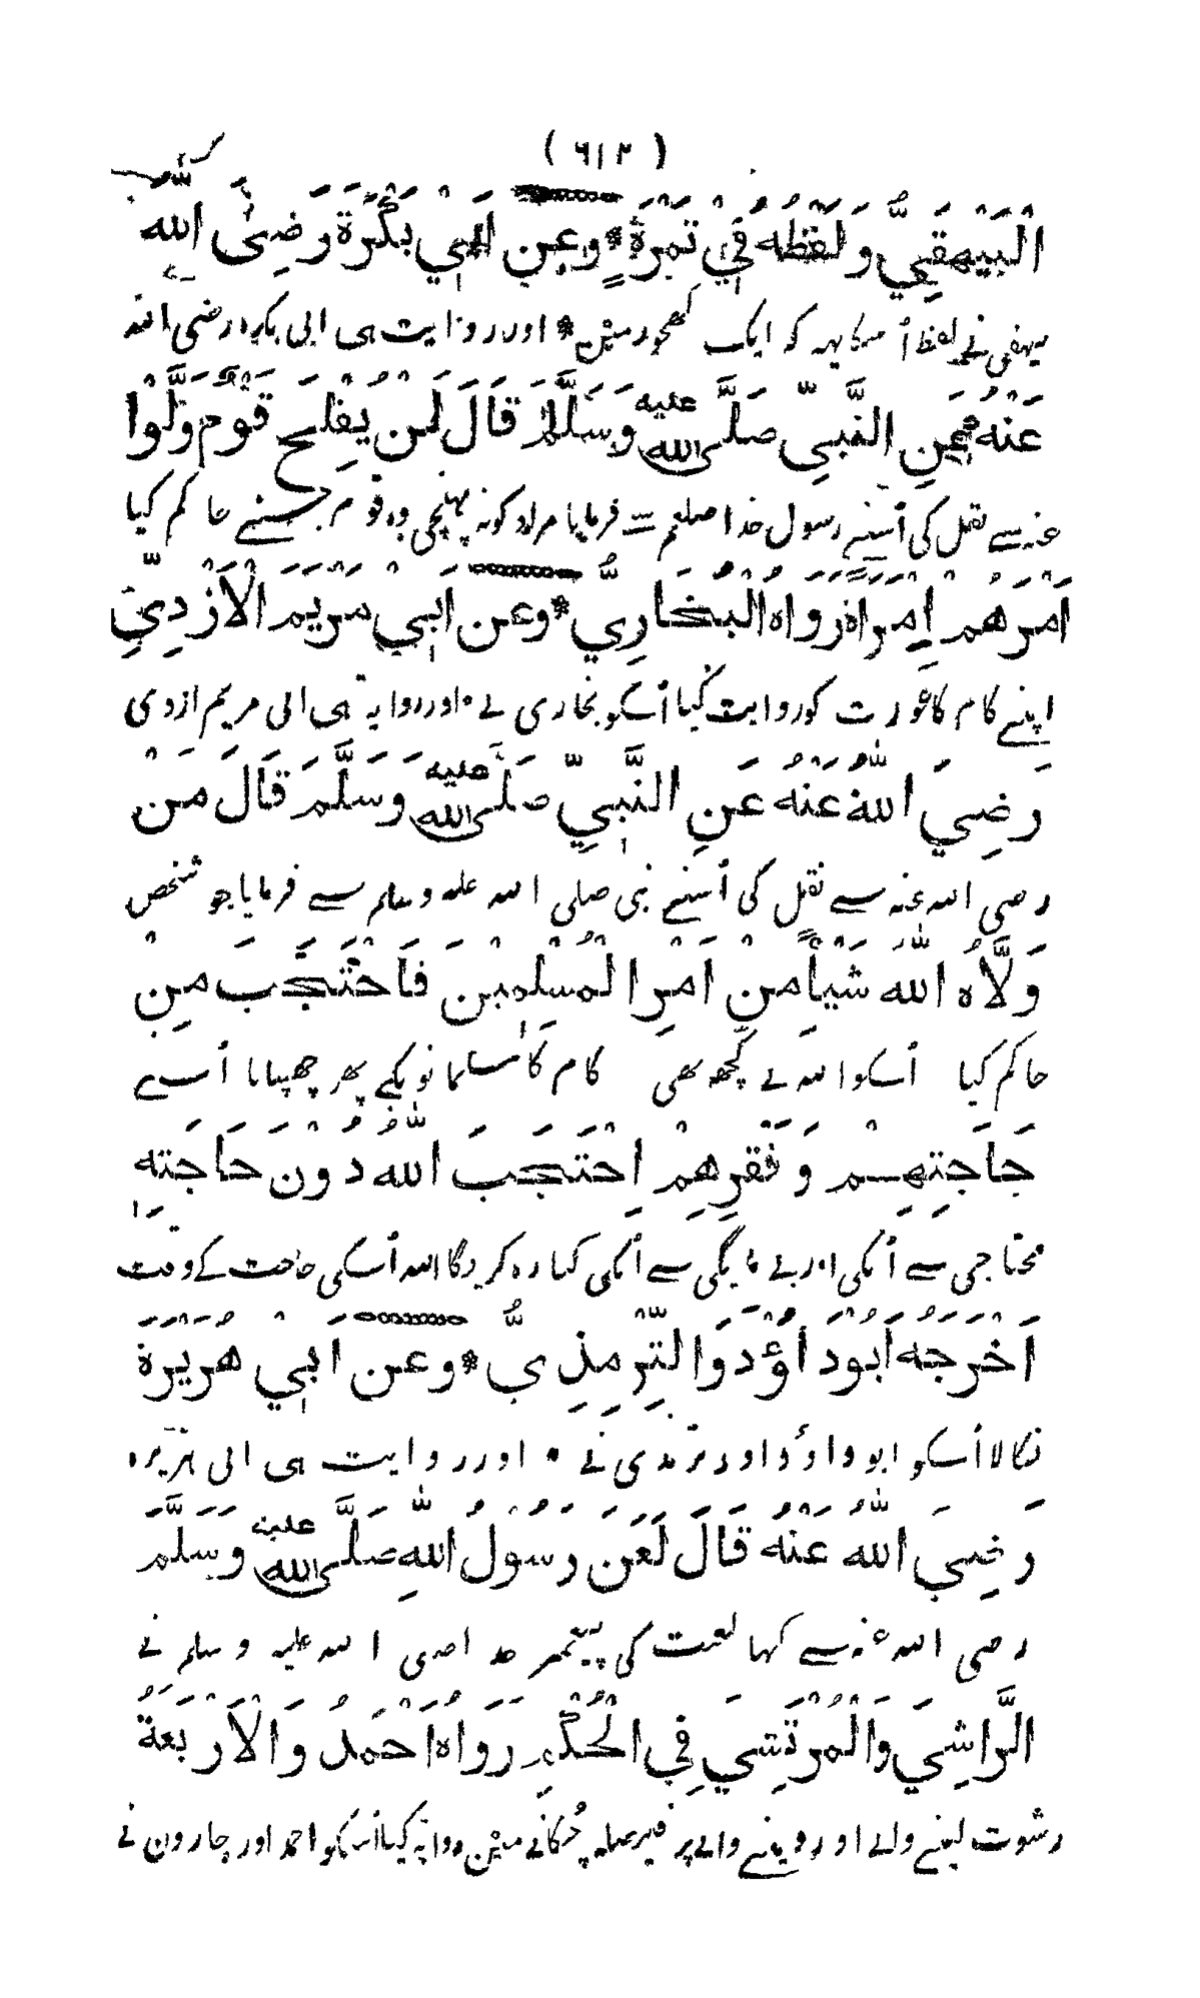 ( ٦١٢ )
اَلْبَيْهَقِيُّ وَلَفْظُهٗ فِيْ تَمْرَةٍ * وعن اَبِيْ بَكْرَةَ رَضِىَ اللّٰهُ
بیہقی نے لفظ اُسکا یہہ کہ ایک کھجور مین * اور روایت ہی ابی بکرہ رضی اللہ
عَنْهُ عَنِ النَّبِيِّ صَلَّى اللّٰه عليه وَسَلَّمَ قَالَ لَنْ يُفْلِحَ قَوْمٌ وَلَّوْا
عنہ سے نقل کی اُسنے رسول خدا صلعم سے فرمایا مراد کو نہ پہنچی وہ قوم جسنے حاکم کیا
اَمْرَهُمْ اِمْرَاَةً رَوَاهُ الْبُخَارِيُّ * وعن اَبِيْ مَرْيَمَ الْاَزْدِيِّ
اپنے کام کا عورت کو روایت کیا اُسکو بخاری نے * اور روایۃ ہی ابی مریم ازدی
رَضِيَ اللّٰهُ عَنْهُ عَنِ النَّبِيِّ صَلَّى اللّٰه عليه وَسَلَّمَ قَالَ مَنْ
رضی اللہ عنہ سے نقل کی اُسنے نبی صلی اللہ علیہ وسلم سے فرمایا جو شخص
وَلَّاهُ اللّٰهُ شَيْأً مِنْ اَمْرِ الْمُسْلِمِيْنَ فَاحْتَجَبَ مِنْ
حاکم کیا اُسکو اللہ نے کچھ بھی کام کا مسلمانونکے پھر چھپایا اُسنے
حَاجَتِهِمْ وَفَقْرِهِمْ اِحْتَجَبَ اللّٰهُ دُوْنَ حَاجَتِهٖ
محتاجی سے اُنکی اور بے مایگی سے اُنکی کنارہ کریگا اللہ اُسکی حاجت کے وقت
اَخْرَجَهُ اَبُوْدَاؤُدَ وَالتِّرْمِذِيُّ * وعن اَبِيْ هُرَيْرَةَ
نکالا اُسکو ابو داؤد اور ترمذی نے * اور روایت ہی ابی ہریرہ
رَضِيَ اللّٰهُ عَنْهُ قَالَ لَعَنَ رَسُوْلُ اللّٰهِ صَلَّى اللّٰه عليه وَسَلَّمَ
رضی اللہ عنہ سے کہا لعنت کی پیغمبر خدا صلی اللہ علیہ وسلم نے
الرَّاشِيَ وَالْمُرْتَشِيَ فِي الْحُكْمِ رَوَاهُ اَحْمَدُ وَالْاَرْبَعَةُ
رشوت لینے والے اور دینے والے پر فیصلہ چُکانے مین روایۃ کیا اُسکو احمد اور چارون نے